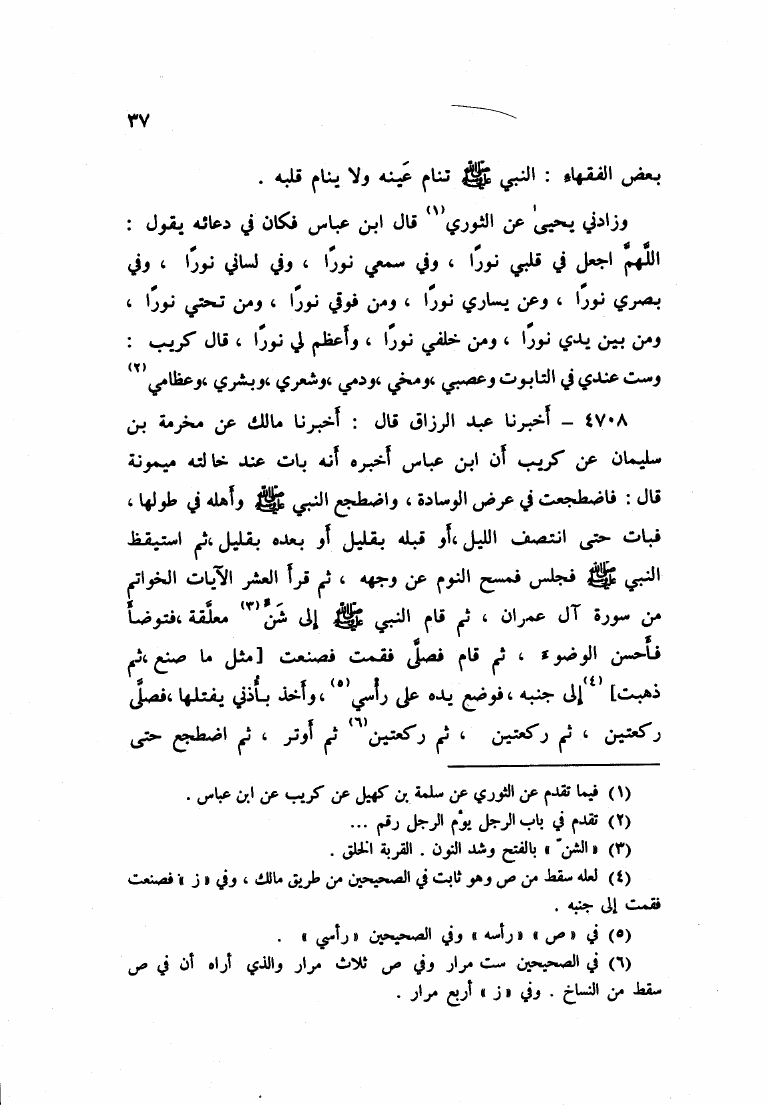 ٣٧
بعض الفقهاء : النبي ﷺ تنام عَينه ولا ينام قلبه .
وزادني يحيىٰ عن الثوري(١) قال ابن عباس فكان في دعائه يقول :
اللَّهمَّ اجعل في قلبي نورًا ، وفي سمعي نورًا ، وفي لساني نورًا ، وفي
بصري نورًا ، وعن يساري نورًا ، ومن فوقي نورًا ، ومن تحتي نورًا ،
ومن بين يدي نورًا ، ومن خلفي نورًا ، وأَعظم لي نورًا ، قال كريب :
وست عندي في التابوت وعصبي ،ومخي ،ودمي ،وشعري ،وبشري ،وعظامي(٢)
٤٧٠٨ – أَخبرنا عبد الرزاق قال : أَخبرنا مالك عن مخرمة بن
سليمان عن كريب أَن ابن عباس أَخبره أَنه بات عند خالته ميمونة
قال : فاضطجعت في عرض الوسادة ، واضطجع النبي ﷺ وأَهله في طولها ،
فبات حتى انتصف الليل ،أَو قبله بقليل أَو بعده بقليل ،ثم استيقظ
النبي ﷺ فجلس فمسح النوم عن وجهه ، ثم قرأَ العشر الآيات الخواتم
من سورة آل عمران ، ثم قام النبي ﷺ إلى شَنٍّ(٣) معلَّقة ،فتوضأَ
فأَحسن الوضوء ، ثم قام فصلَّى فقمت فصنعت [مثل ما صنع ،ثم
ذهبت](٤) إلى جنبه ،فوضع يده على رأْسي(٥) ،وأَخذ بأُذني يفتلها ،فصلَّى
ركعتين ، ثم ركعتين ، ثم ركعتين(٦) ثم أَوتر ، ثم اضطجع حتى
(١) فيما تقدم عن الثوري عن سلمة بن كهيل عن كريب عن ابن عباس .
(٢) تقدم في باب الرجل يؤم الرجل رقم ...
(٣) « الشنّ » بالفتح وشد النون . القربة الخلق .
(٤) لعله سقط من ص وهو ثابت في الصحيحين من طريق مالك ، وفي « ز » فصنعت
فقمت إلى جنبه .
(٥) في « ص » « رأسه » وفي الصحيحين « رأسي » .
(٦) في الصحيحين ست مرار وفي ص ثلاث مرار والذي أراه أن في ص
سقط من النساخ . وفي « ز » أربع مرار .